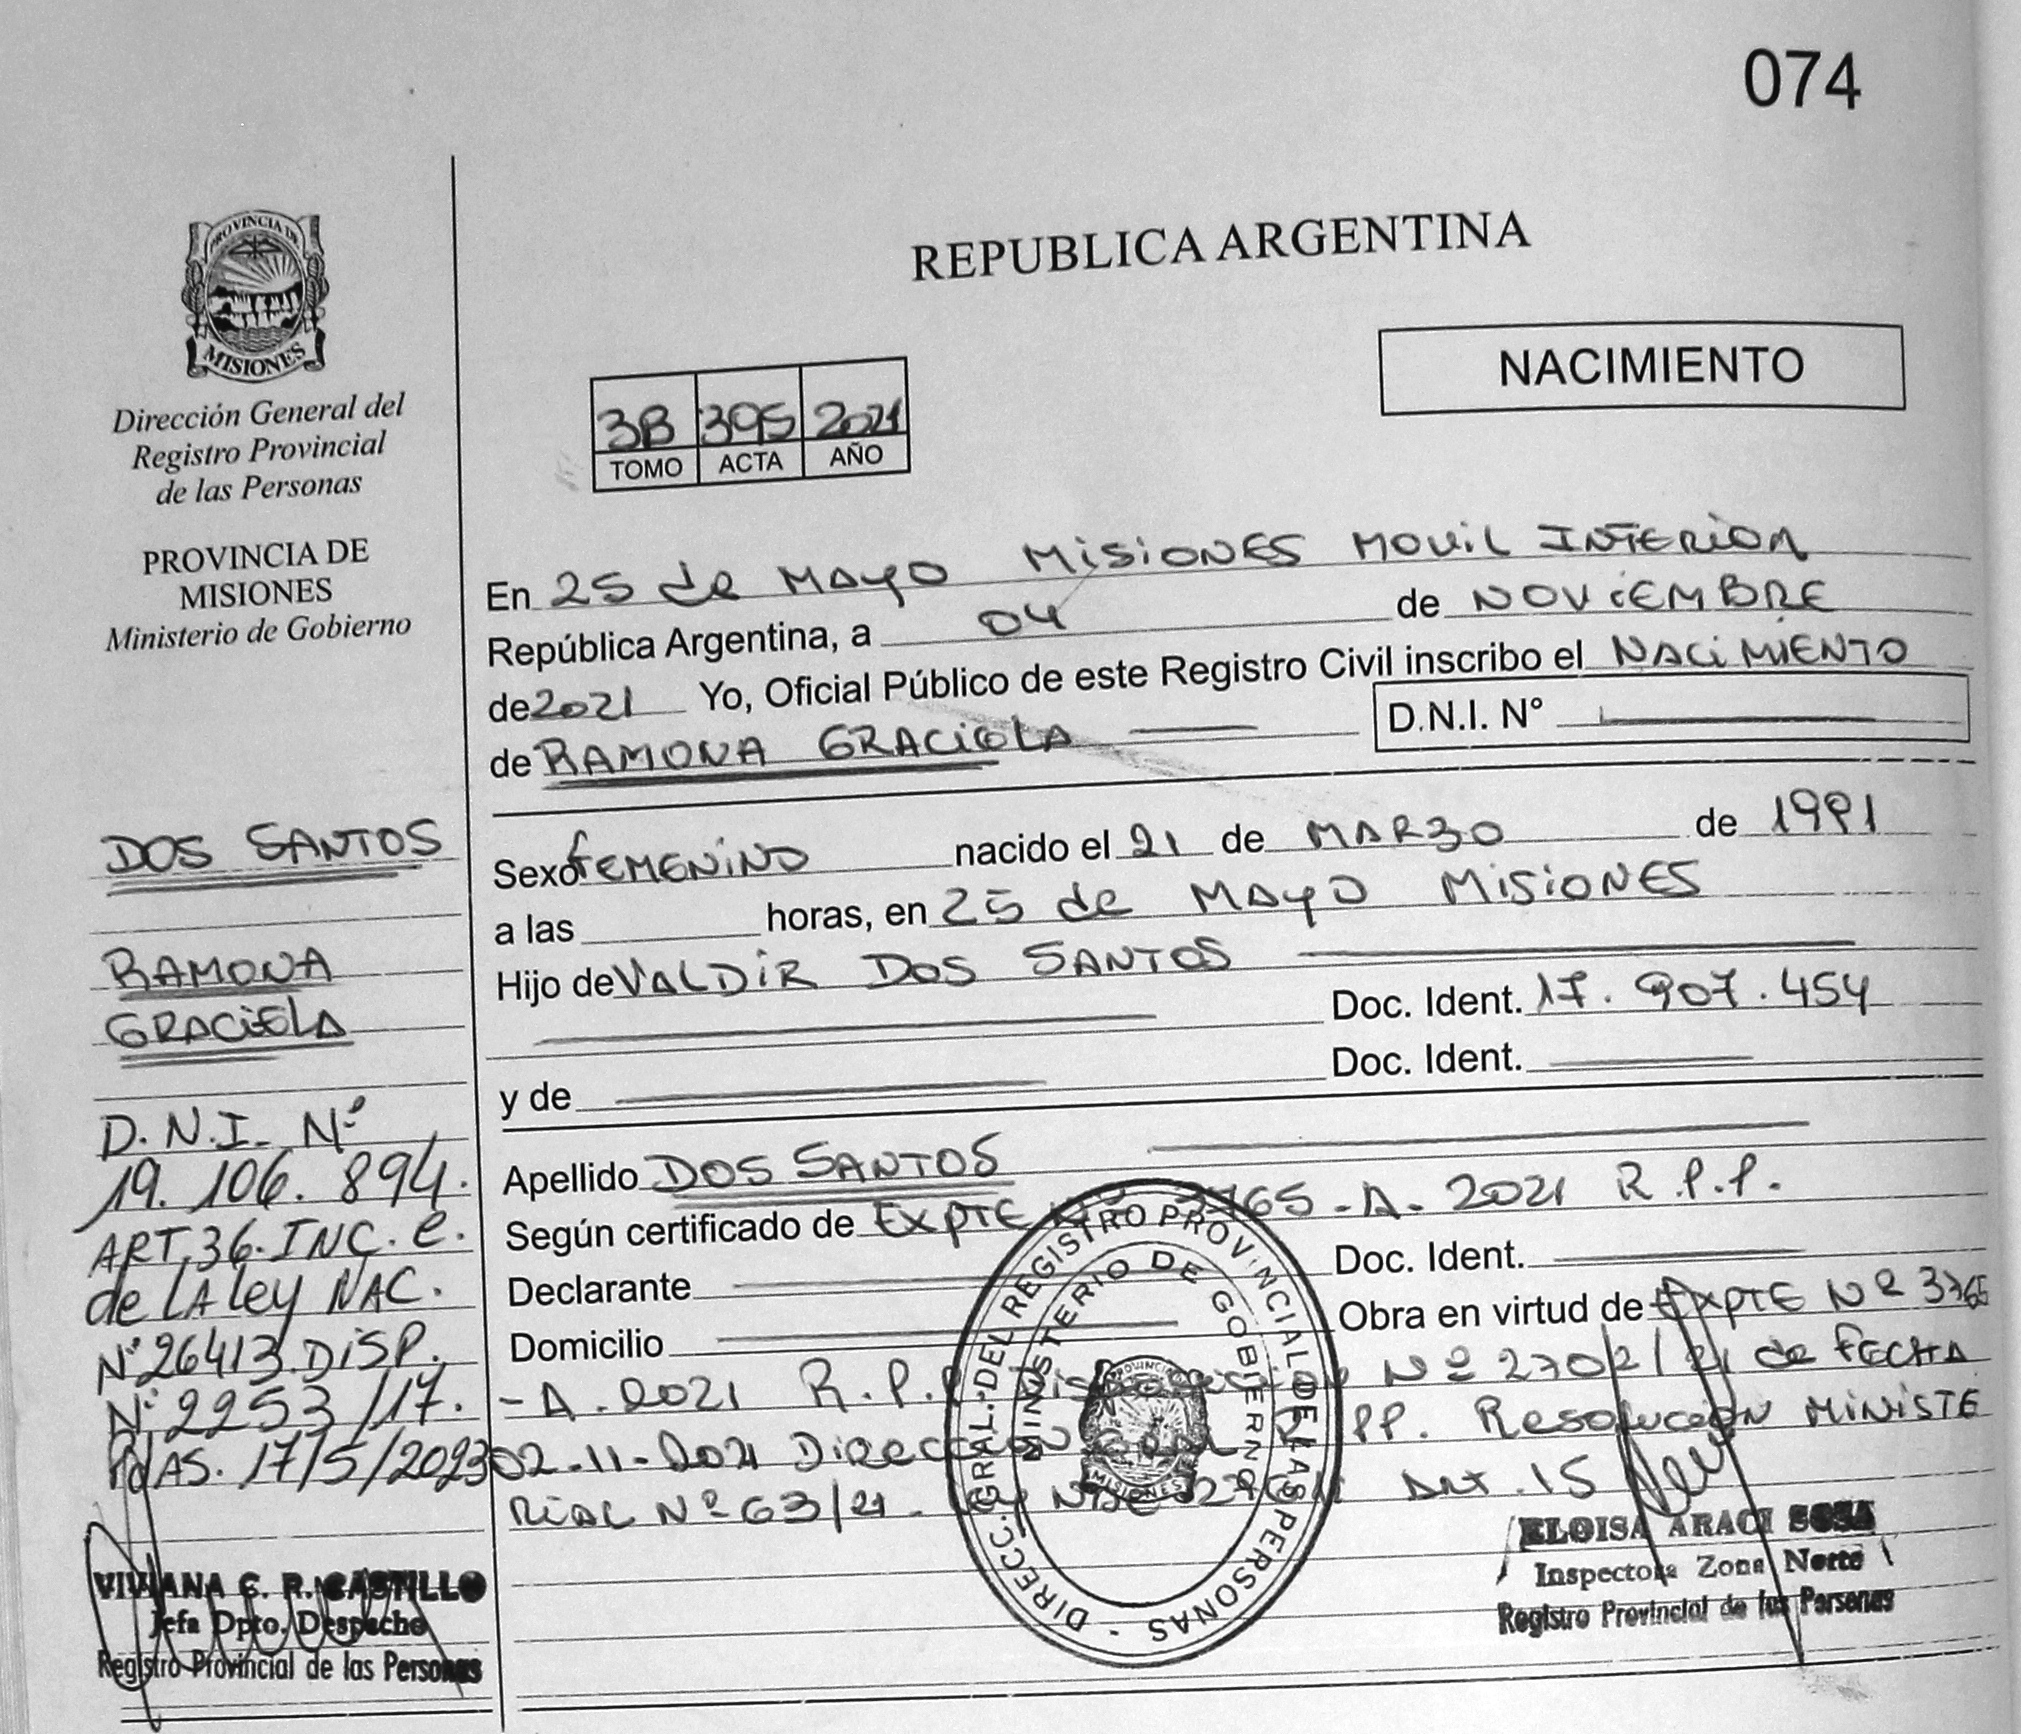 074
PROVINCIA DE
MISIONES
REPUBLICA ARGENTINA
NACIMIENTO
Dirección General del
Registro Provincial
de las Personas
PROVINCIA DE
MISIONES
Ministerio de Gobierno
3B 395 2021
TOMO ACTA AÑO
En 25 de MAYO MISIONES MOVIL INTERIOR
República Argentina, a 04 de NOVIEMBRE
de 2021 Yo, Oficial Público de este Registro Civil inscribo el NACIMIENTO
de RAMONA GRACIELA D.N.I. N°
DOS SANTOS
RAMONA
GRACIELA
D.N.I. Nº
19.106.894.
ART.36.INC.e.
de LA Ley NAC.
Nº26413.DISP.
Nº.2253/17.
PdAS. 17/5/2023
VIVIANA C. R. CASTILLO
Jefa Dpto. Despacho
Registro Provincial de las Personas
Sexo FEMENINO nacido el 21 de MARZO de 1991
a las horas, en 25 de MAYO MISIONES
Hijo de VALDIR DOS SANTOS
Doc. Ident. 17.907.454
y de Doc. Ident.
Apellido DOS SANTOS
Según certificado de EXPTE Nº 3765-A-2021 R.P.P.
Declarante Doc. Ident.
Domicilio Obra en virtud de EXPTE Nº 3765
-A-2021 R.P.P. Disposición Nº 2702/21 de FECHA
02-11-2021 DIRECCION GRAL R.PP. Resolución MINISTE
RIAL Nº 63/21. Art. 15
DIRECC. GRAL. DEL REGISTRO PROVINCIAL DE LAS PERSONAS -
MINISTERIO DE GOBIERNO
PROVINCIA
MISIONES
ELOISA ARACI SOSA
Inspectora Zona Norte
Registro Provincial de las Personas